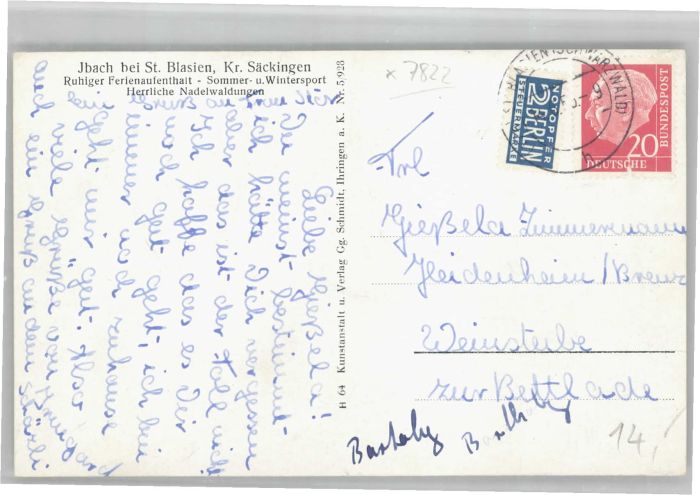 Jbach bei St. Blasien, Kr. Säckingen
Ruhiger Ferienaufenthalt - Sommer- u. Wintersport
Herrliche Nadelwaldungen
H 64 Kunstanstalt u. Verlag Gg. Schmidt, Ihringen a. K. Nr. 5928
x 7822
NOTOPFER
2 BERLIN
STEUERMARKE
20
DEUTSCHE
BUNDESPOST
Liebe Gießela!
Du meinst bestimmt
ich hätte Dich vergessen
aber das ist der Fall nicht
Ich hoffe das es Dir
noch gut geht, ich bin
immer noch zuhause
geht mir gut. Also
viele Grüße von
auch ein Gruß an dein
ein Gruß an Frau
Frl
Gießela Zimmermann
Heidenheim / Brenz
Weinstube
zur Bettlade
14,